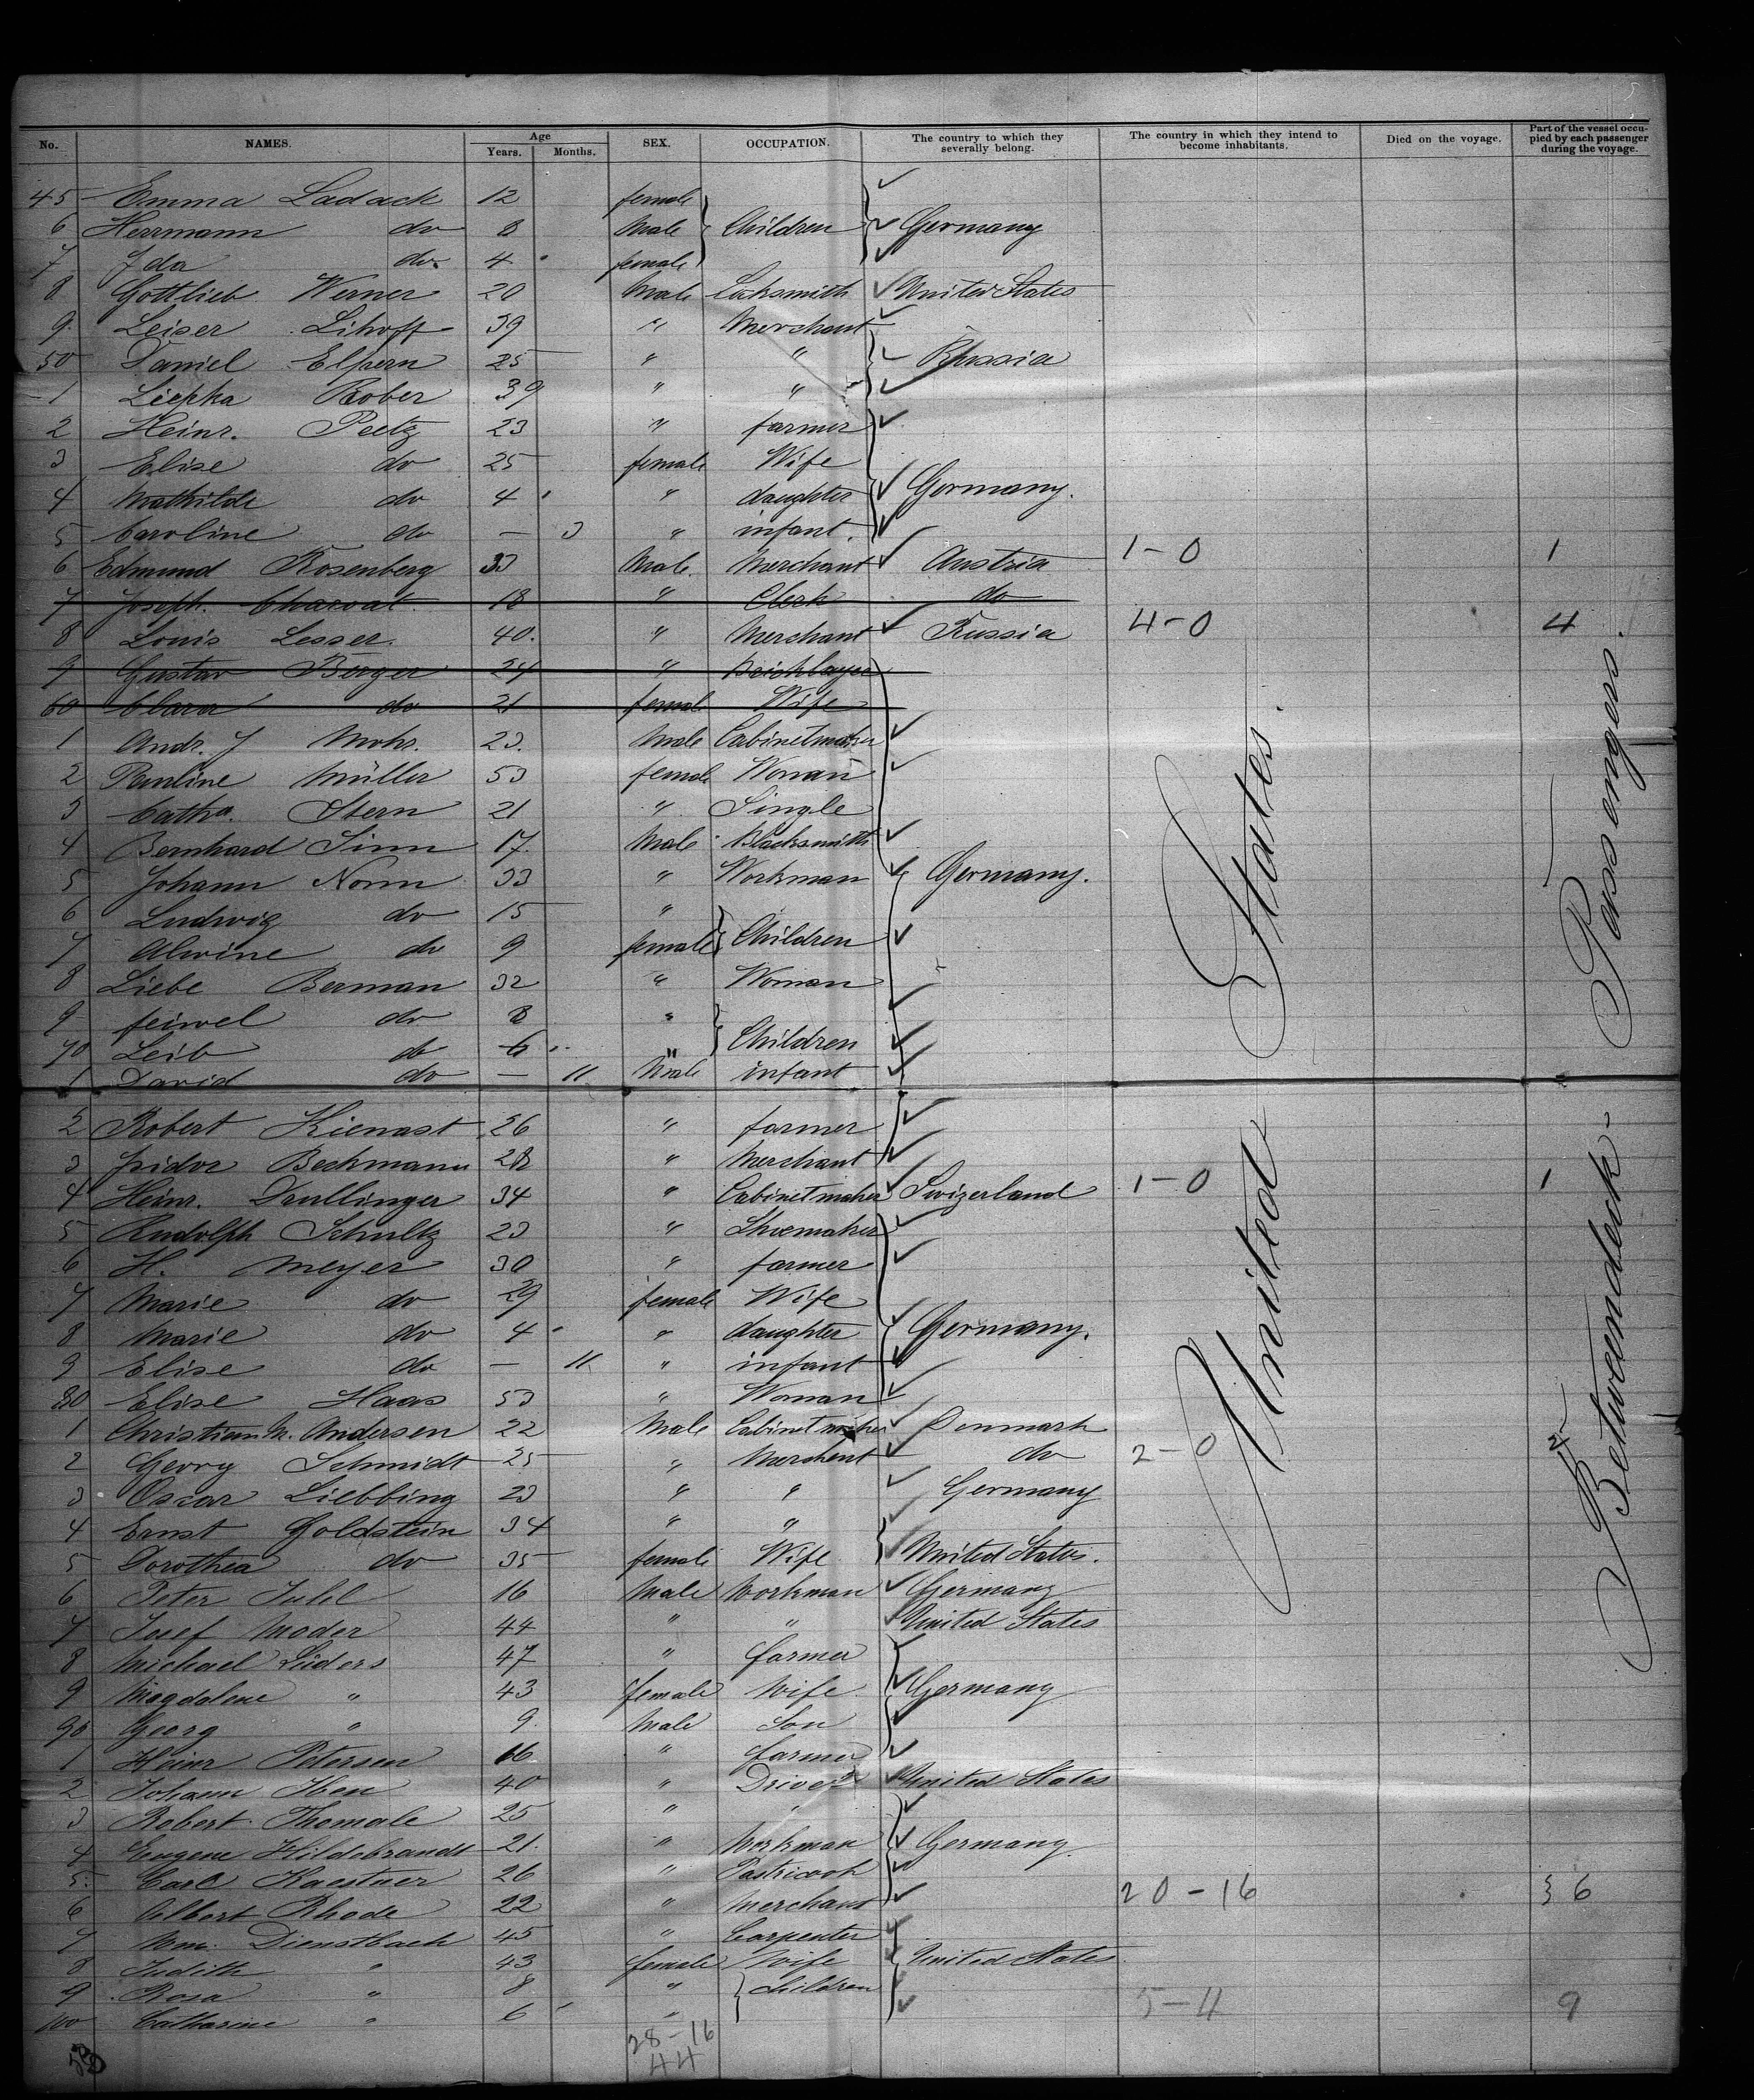 No. NAMES. Age Years. Months. SEX. OCCUPATION. The country to which they severally belong. The country in which they intend to become inhabitants. Died on the voyage. Part of the vessel occupied by each passenger during the voyage.
45 Emma Ladack 12 female
6 Herrmann do 8 Male Children Germany
7 Ida do 4 female
8 Gottlieb Werner 20 Male Locksmith United States
9 Leiser Lihoff 39 " Merchant
50 Daniel Elpern 25 " " Russia
1 Liepka Rober 39 " "
2 Heinr. Peetz 23 " farmer
3 Elise do 25 female Wife
4 Mathilde do 4 " daughter Germany.
5 Caroline do — 3 " infant.
6 Edmund Rosenberg 33 Male Merchant Austria 1-0 1
7 Joseph. Charvat 18 " Clerk do
8 Louis Lesser 40. " Merchant Russia 4-0 4
9 Gustav Berger 24 " Bricklayer
60 Clara do 21 female Wife
1 Andr. J Mohr. 23. Male Cabinetmaker
2 Pauline Müller 53 female Woman
3 Catha. Stern 21 " Single
4 Bernhard Sinn 17 Male Blacksmith
5 Johann Norm 33 " Workman Germany.
6 Ludwig do 15 "
7 Alwine do 9 female Children
8 Liebe Berman 32 " Woman
9 feiwel do 8 "
70 Leib do 6 " Children
1 David do — 11 Male infant
2 Robert Kienast 26 " farmer
3 Isidor Bechmann 28 " Merchant
4 Heinr. Drullinger 34 " Cabinetmaker Swizerland 1-0 1
5 Rudolph Schultz 23 " Shoemaker
6 H. Meyer 30 " farmer
7 Marie do 29 female Wife
8 Marie do 4 " daughter Germany.
9 Elise do — 11 " infant
80 Elise Haas 53 " Woman
1 Christian M. Andersen 22 Male Cabinetmaker Denmark
2 Georg Schmidt 25 " Merchent do 2-0 2
3 Oscar Liebbing 23 " " Germany
4 Ernst Goldstein 34 " "
5 Dorothea do 35 female Wife United States.
6 Peter Juhl 16 Male Workman Germany
7 Josef Moder 44 " " United States
8 Michael Lüders 47 " farmer
9 Magdalene " 43 female Wife Germany
90 Georg " 9. Male Son
1 Heinr Petersen 16 " farmer
2 Johann Iben 40 " Driver United States
3 Robert Thomale 25 " "
4 Eugene Hildebrandt 21. " Workman Germany
5. Carl Kaestner 26 " Pastricook
6 Albert Rhode 22 " Merchant 20-16 36
7 Wm. Dienstbach 45 " Carpenter
8 Judith " 43 female Wife United States
9 Rosa " 8 " Children
100 Catharine " 6 " 5-4 9
28-16
44
United States.
Betweendeck Passengers.